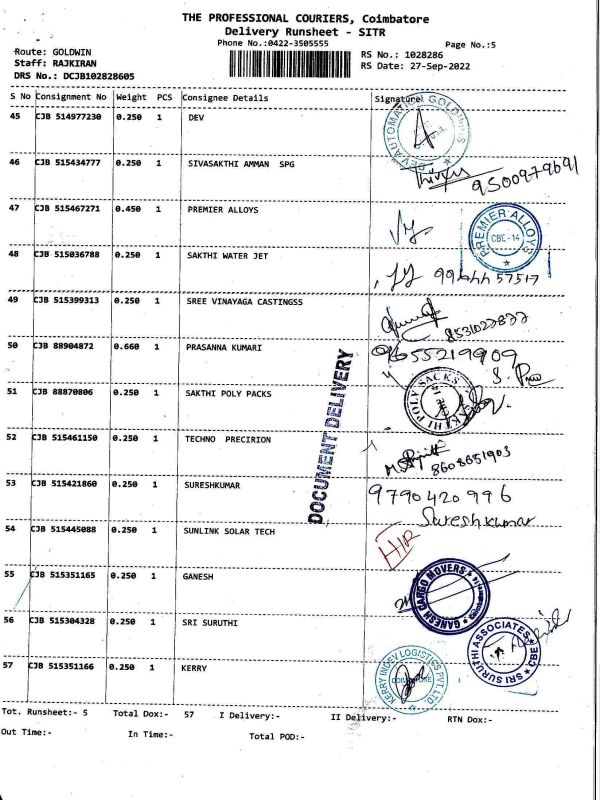 THE PROFESSIONAL COURIERS, Coimbatore
Delivery Runsheet - SITR
Phone No.:0422-3505555
Page No.:5
Route: GOLDWIN
RS No.: 1028286
Staff: RAJKIRAN
RS Date: 27-Sep-2022
DRS No.: DCJB102828605
S No Consignment No Weight PCS Consignee Details Signature
45 CJB 514977230 0.250 1 DEV
46 CJB 515434777 0.250 1 SIVASAKTHI AMMAN SPG
9500979691
47 CJB 515467271 0.450 1 PREMIER ALLOYS
PREMIER ALLOYS
CBE-14
48 CJB 515036788 0.250 1 SAKTHI WATER JET
9964457517
49 CJB 515399313 0.250 1 SREE VINAYAGA CASTINGSS
50 CJB 88904872 0.660 1 PRASANNA KUMARI
9655219909
51 CJB 88870806 0.250 1 SAKTHI POLY PACKS
DOCUMENT DELIVERY
52 CJB 515461150 0.250 1 TECHNO PRECIRION
8608651903
53 CJB 515421860 0.250 1 SURESHKUMAR
9790420996
Sureshkumar
54 CJB 515445088 0.250 1 SUNLINK SOLAR TECH
55 CJB 515351165 0.250 1 GANESH
GANESH CARGO MOVERS
56 CJB 515304328 0.250 1 SRI SURUTHI
SRI SURUTHI ASSOCIATES
CBE
57 CJB 515351166 0.250 1 KERRY
KERRY INDEV LOGISTICS PVT. LTD
COIMBATORE
Tot. Runsheet:- 5 Total Dox:- 57 I Delivery:- II Delivery:- RTN Dox:-
Out Time:- In Time:- Total POD:-